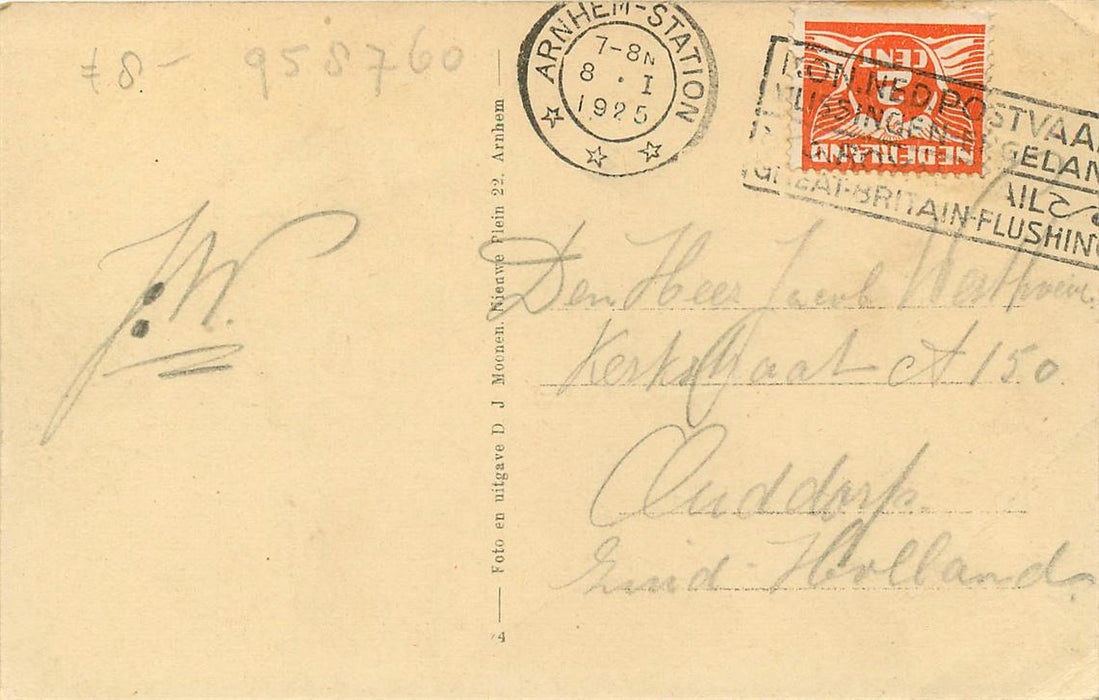 f 8 - 958760
ARNHEM-STATION
7-8N
8 · I
1925
NEDERLAND
CENT
KON. NED. POSTVAA
VLISSINGEN-ENGELAN
AILS
GREAT-BRITAIN-FLUSHING
J.W.
4 Foto en uitgave D J Moonen. Nieuwe Plein 22. Arnhem
Den Heer Jacob Westhoeve
Kerkstraat A 150
Ouddorp
Zuid-Holland